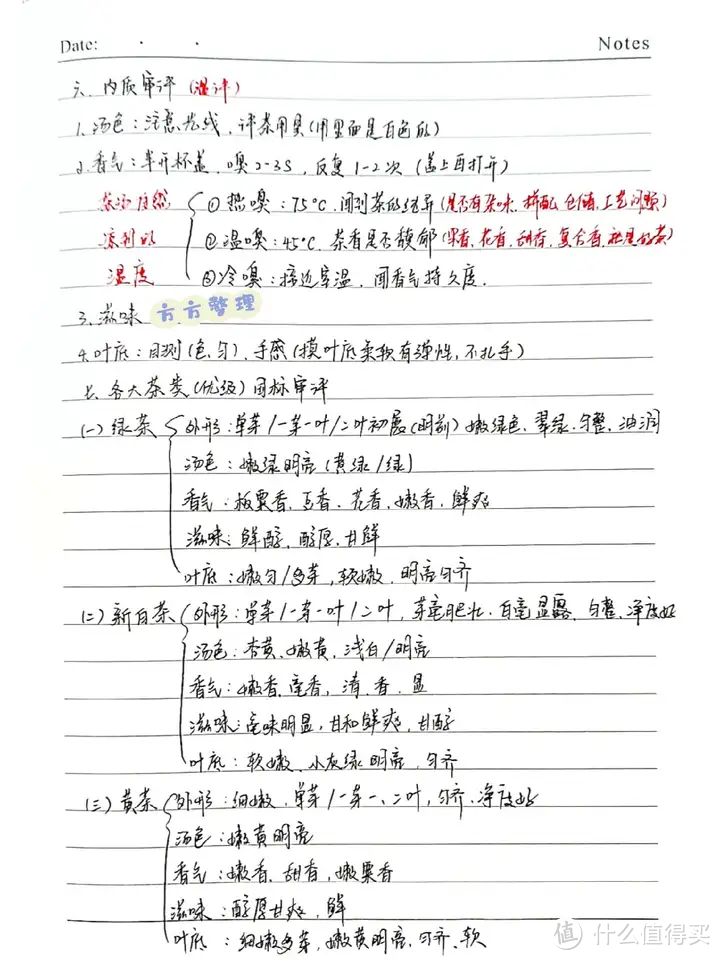 Date: · ·
Notes
六、内质审评 (湿评)
1. 汤色：注意光线、评茶用具(用里面是白色的)
2. 香气：半开杯盖，嗅2-3S，反复1-2次 (盖上再打开)
茶汤自然
凉到的
温度
① 热嗅：75°C、闻到茶的优异(是否有杂味、拼配、仓储、工艺问题)
②温嗅：45°C、茶香是否馥郁(果香、花香、甜香、复合香)
③冷嗅：接近室温，闻香气持久度.
3. 滋味
方方整理
4. 叶底：目测(色、匀)、手感(摸叶底柔软有弹性，不扎手)
七、各大茶类(优级)国标审评
(一) 绿茶
外形：单芽/一芽一叶/二叶初展(明前) 嫩绿色、翠绿、匀整、油润
汤色：嫩绿明亮(黄绿/绿)
香气：板栗香、豆香、花香、嫩香、鲜爽
滋味：鲜醇、醇厚、甘鲜
叶底：嫩匀/多芽，软嫩、明亮匀齐
(二) 新白茶
外形：单芽/一芽一叶/二叶，芽毫肥壮、白毫显露、匀整、净度好
汤色：杏黄、嫩黄、浅白/明亮
香气：嫩香、毫香，清、香、显
滋味：毫味明显，甘和鲜爽，甘醇
叶底：软嫩、灰绿明亮，匀齐
(三) 黄茶
外形：细嫩、单芽/一芽一、二叶，匀齐、净度好
汤色：嫩黄明亮
香气：嫩香、甜香，嫩栗香
滋味：醇厚甘爽，鲜
叶底：细嫩多芽，嫩黄明亮、匀齐、软
值 什么值得买